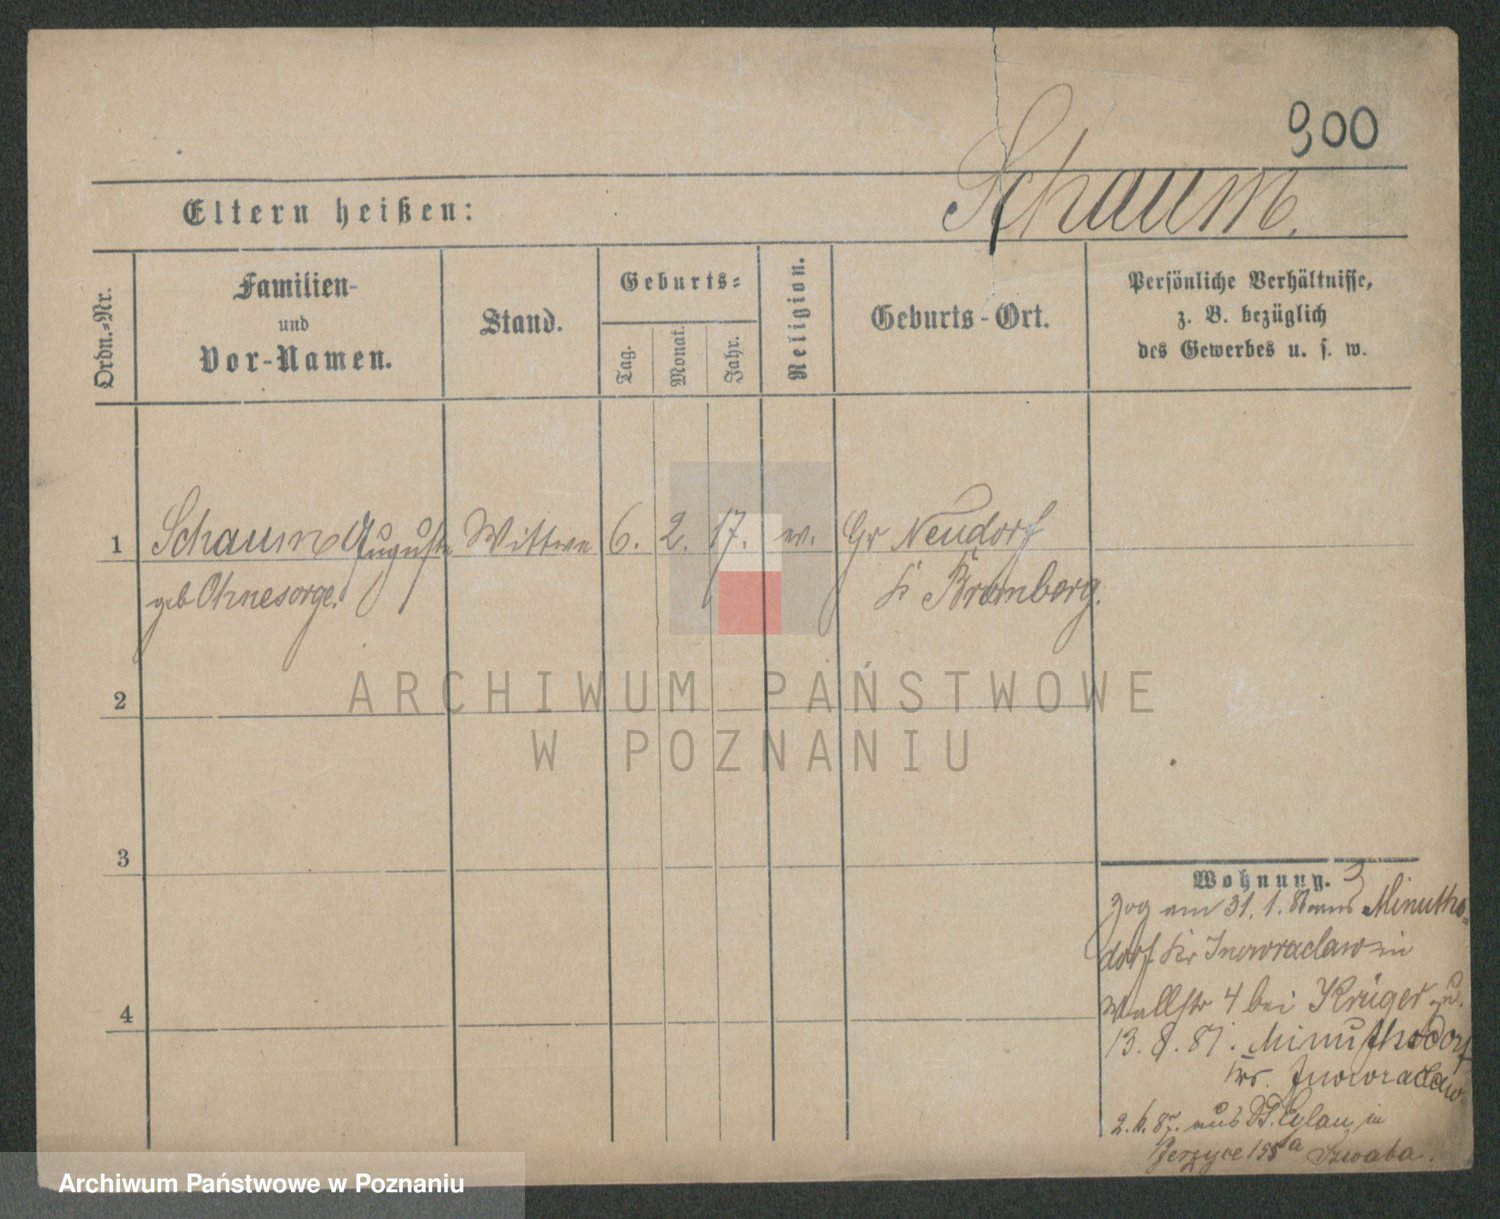 900
Schaum.
Eltern heißen:
Ordn.=Nr.
Familien-
und
Vor-Namen.
Stand.
Geburts=
Tag.
Monat.
Jahr.
Religion.
Geburts-Ort.
Persönliche Verhältnisse,
z. B. bezüglich
des Gewerbes u. s. w.
1 Schaum Auguste Wittwe 6. 2. 17. ev. Gr Neudorf
geb Ohnesorge. Kr Bromberg.
2
3
4
Wohnung.
Zog am 31. 1. 81 aus Minuths=
dorf Kr Inowraclaw in
Wallstr 4 bei Krüger
13. 8. 81. Minuthsdorf
Krs. Inowraclaw.
aus Dt. Eylau in
Jerzyce 155a Szwaba.
ARCHIWUM PAŃSTWOWE
W POZNANIU
Archiwum Państwowe w Poznaniu